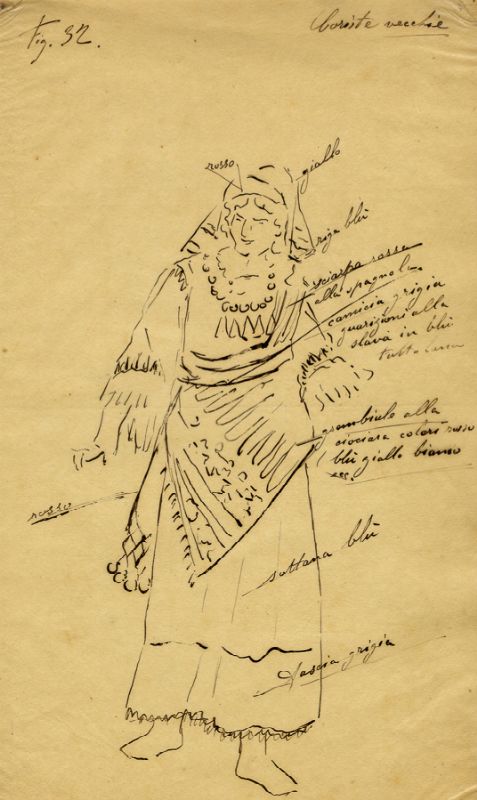 Fig. 32.
Coriste vecchie
rosso
giallo
riga blù
sciarpa rossa
alla spagnola
camicia grigia
guarizioni alla
slava in blù
tutto lana
grembiule alla
ciociara colori rosso
blù giallo bianco
ecc.
rosso
sottana blù
fascia grigia